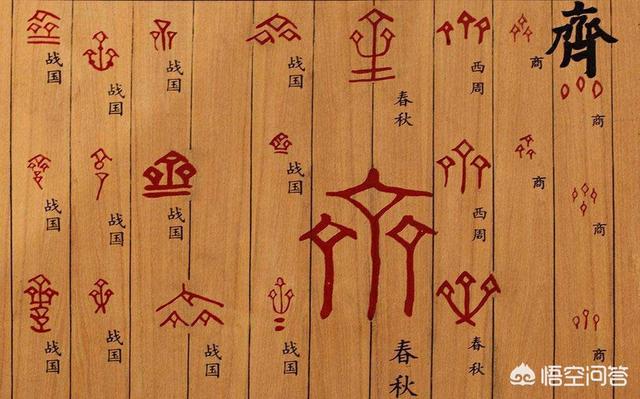 齊
商
商
商
商
商
西周
西周
春秋
春秋
春秋
战国
战国
战国
战国
战国
战国
战国
战国
战国
战国
战国
战国
悟空问答